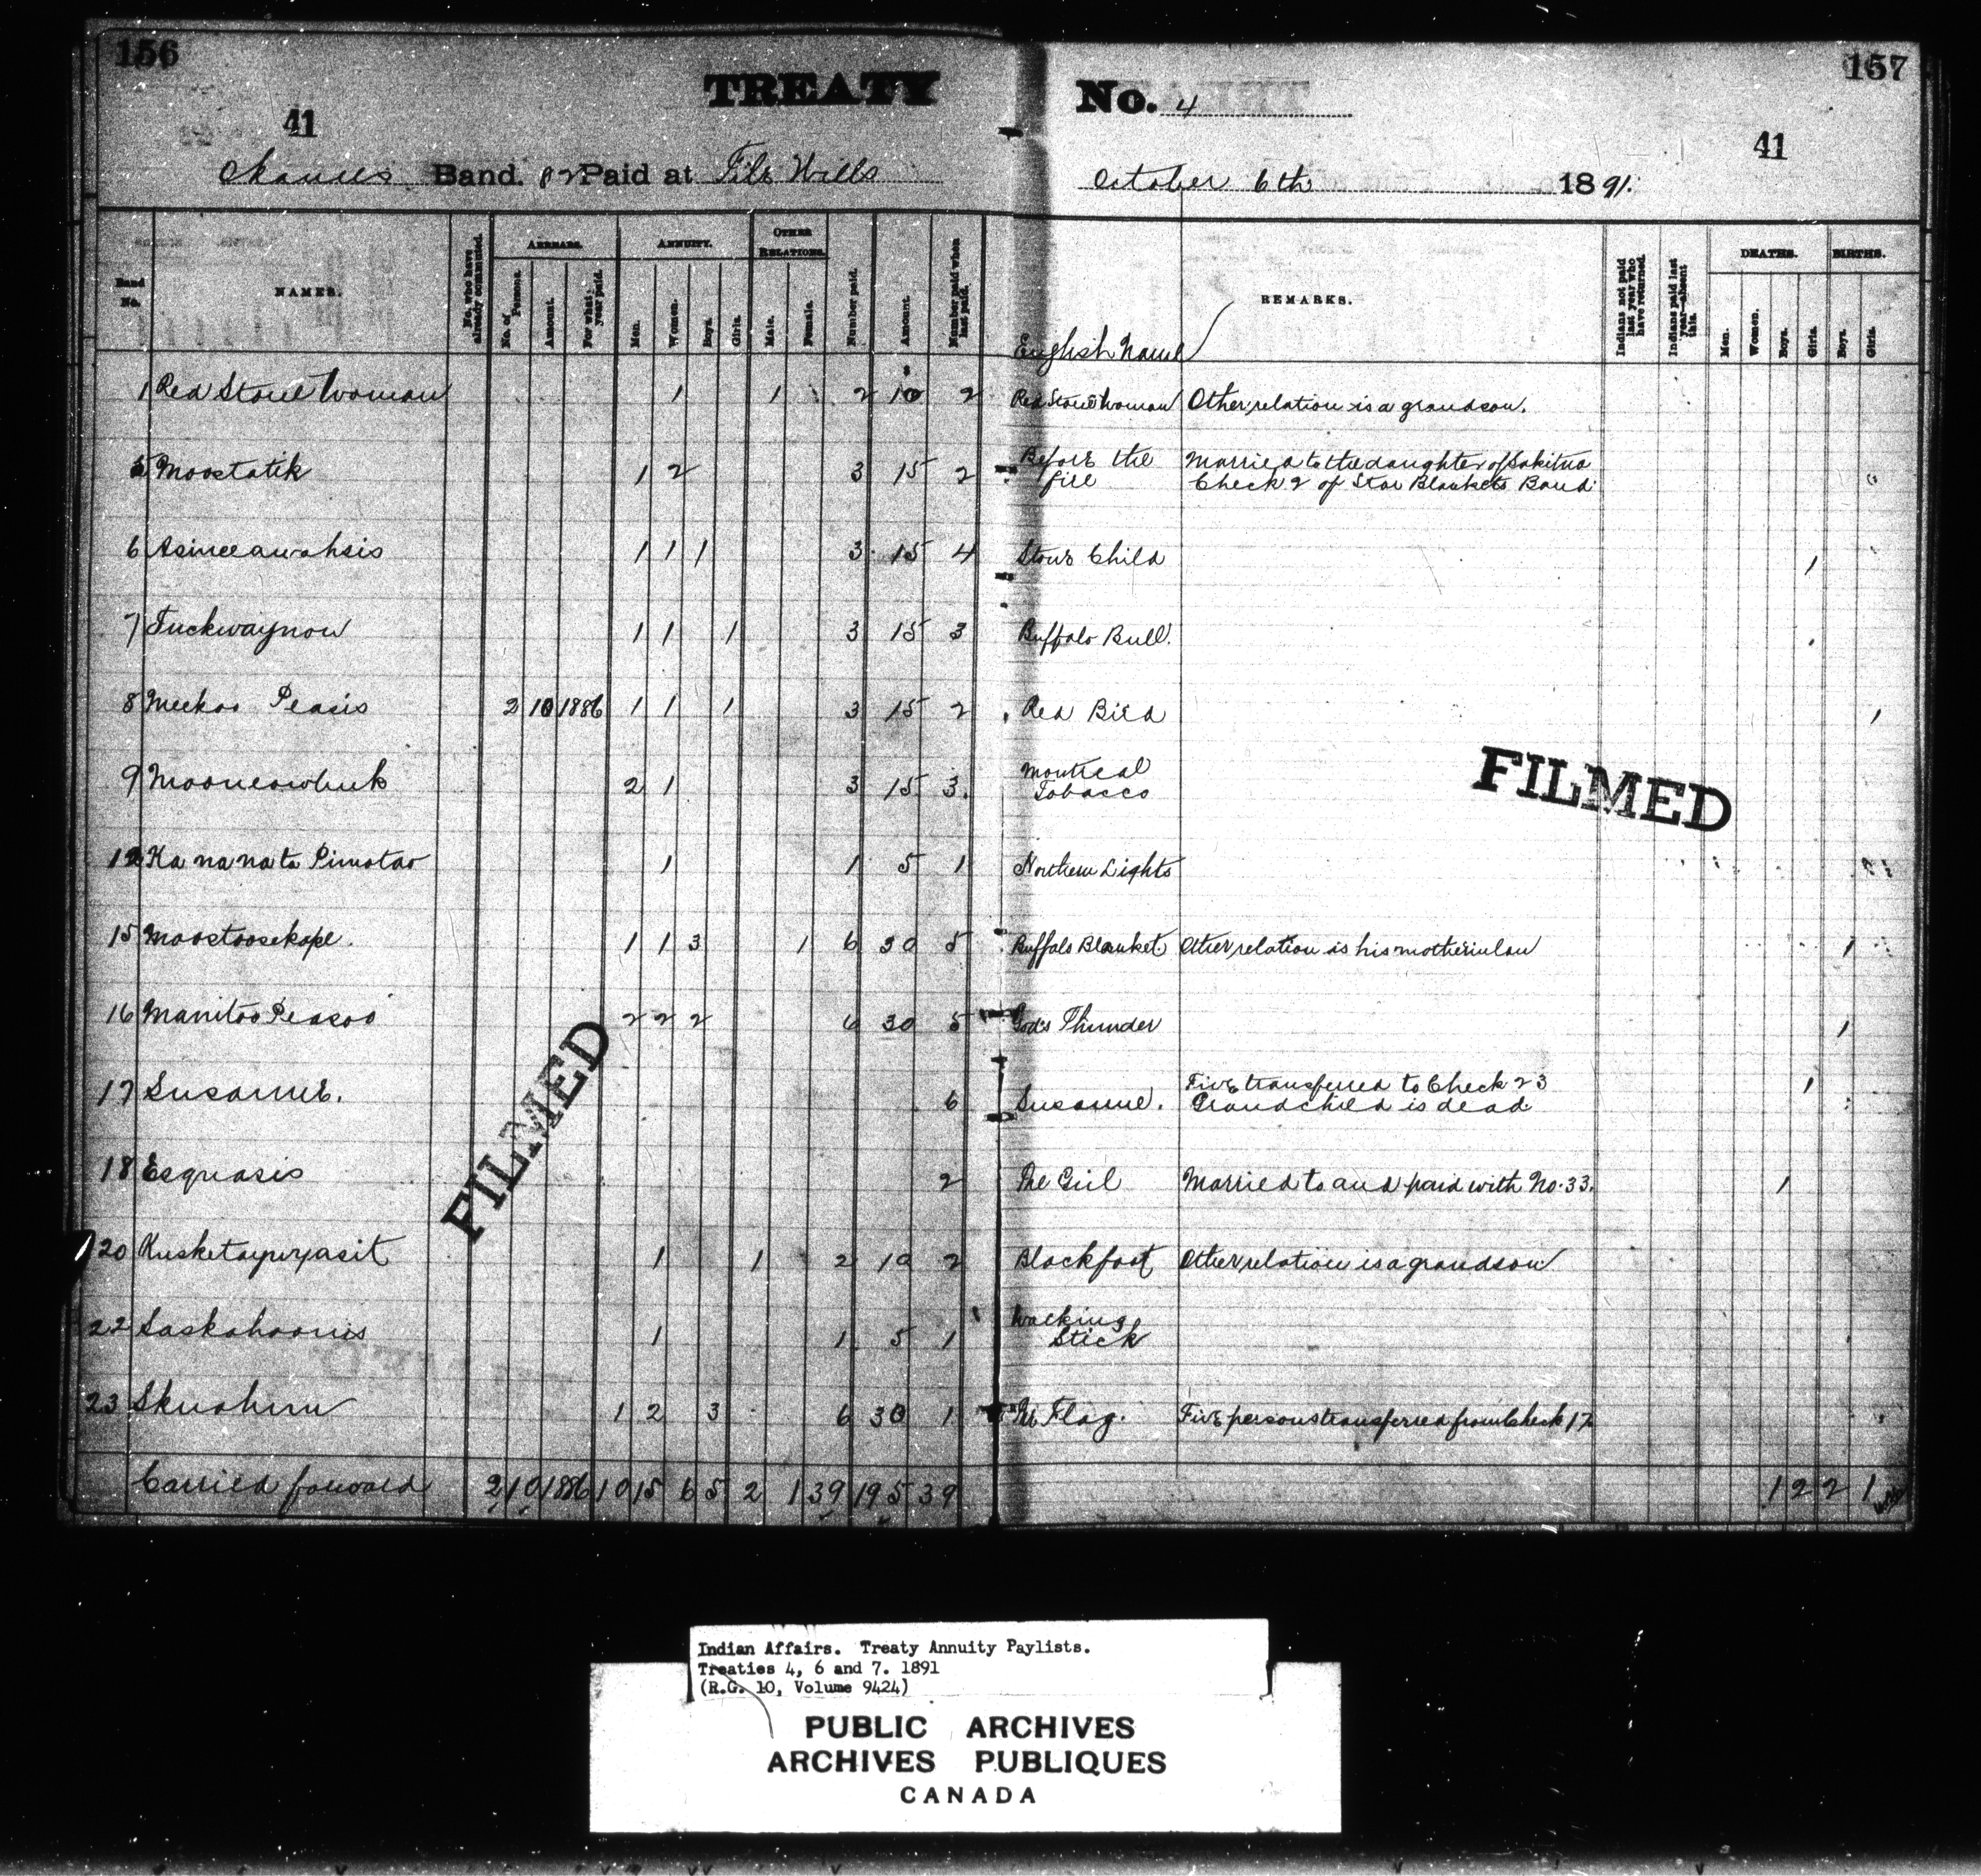 156
157
TREATY No. 4
41
41
Okanees Band. 82 Paid at File Hills October 6th 1891.
Band No.
NAMES.
No. who have already commuted.
ARREARS.
No. of Persons.
Amount.
For what year paid.
ANNUITY.
Men.
Women.
Boys.
Girls.
OTHER RELATIONS.
Male.
Female.
Number paid.
Amount.
Number paid when last paid.
English Name
REMARKS.
Indians not paid last year who have returned.
Indians paid last year—absent this.
DEATHS.
Men.
Women.
Boys.
Girls.
BIRTHS.
Boys.
Girls.
1 Red Stone Woman 1 1 2 10 2 Red Stone Woman Other relation is a grandson.
5 Moostatik 1 2 3 15 2 Before the fire Married to the daughter of Sakitna
Check 2 of Star Blankets Band
6 Asineeawahsis 1 1 1 3 15 4 Stone Child 1
7 Tuckwaynow 1 1 1 3 15 3 Buffalo Bull.
8 Meekoo Peasis 2 10 1886 1 1 1 3 15 2 Red Bird 1
9 Mooneowhuk 2 1 3 15 3. Montreal Tobacco
12 Ka na na ta Pimotao 1 1 5 1 Northern Lights
15 Moostoosekope. 1 1 3 1 6 30 5 Buffalo Blanket Other relation is his motherinlaw 1
16 Manitoo Peasoo 2 2 2 6 30 5 God's Thunder 1
17 Susanne. 6 Susanne. Five transferred to Check 23 1
Grandchild is dead
18 Esquasis 2 The Girl Married to and paid with No. 33. 1
20 Kusketaywyasit 1 1 2 10 2 Blackfoot Other relation is a grandson
22 Saskahoonis 1 1 5 1 Walking Stick
23 Skuahun 1 2 3 6 30 1 The Flag. Five persons transferred from Check 17
Carried forward 2 10 1886 10 15 6 5 2 1 39 195 39 1 2 2 1
FILMED
FILMED
Indian Affairs. Treaty Annuity Paylists.
Treaties 4, 6 and 7. 1891
(R.G. 10, Volume 9424)
PUBLIC ARCHIVES
ARCHIVES PUBLIQUES
CANADA